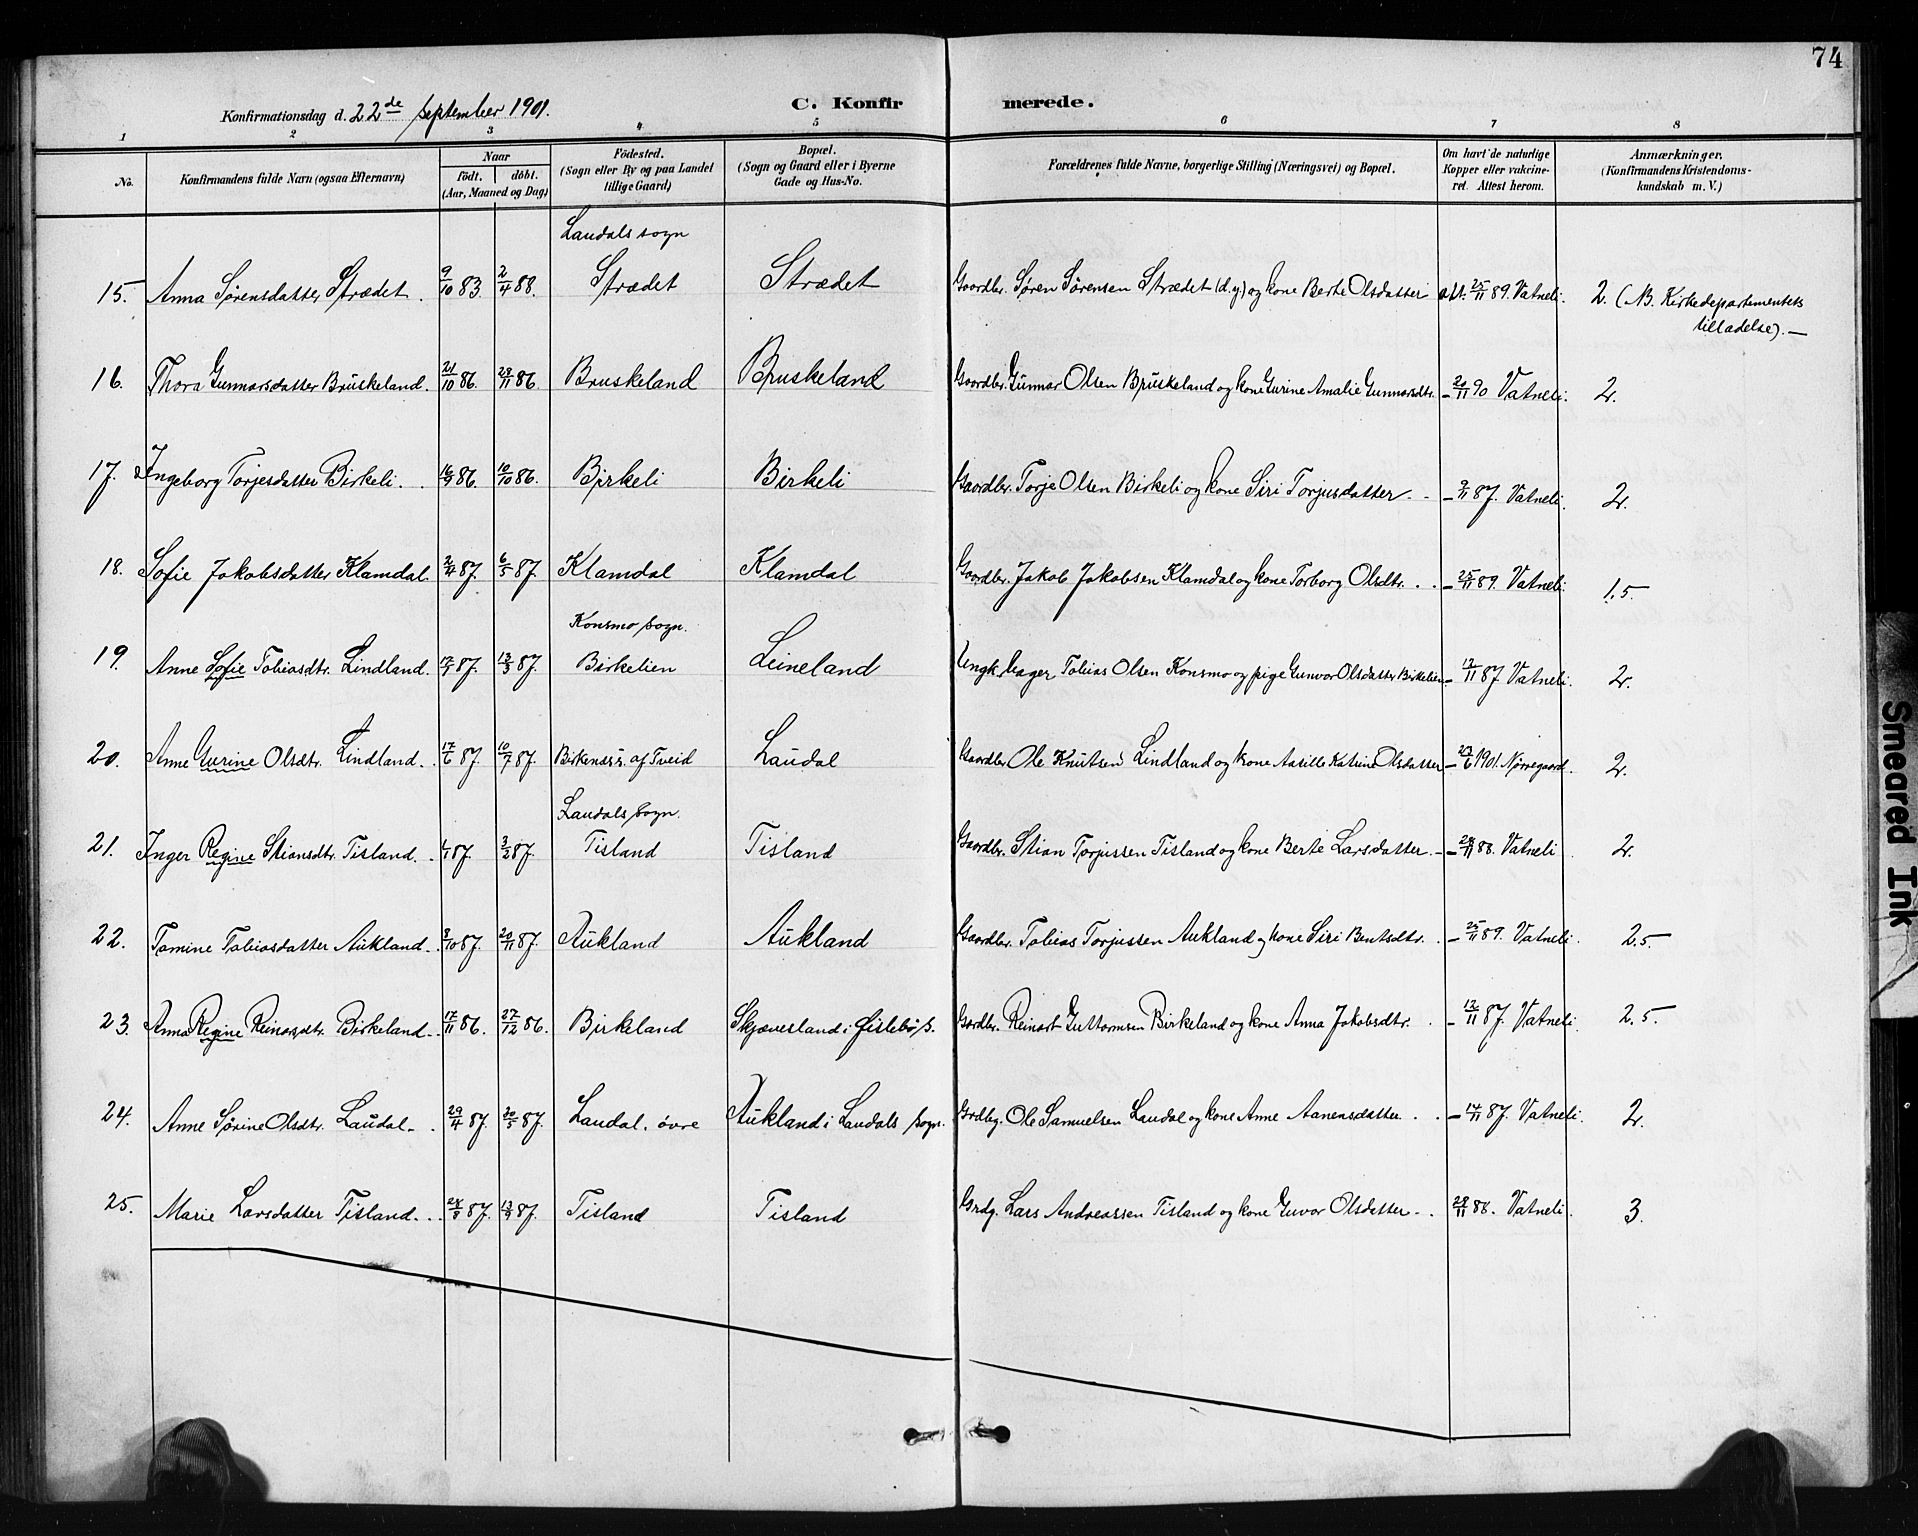 74
Konfirmationsdag d. 22de September 1901.
C. Konfirmerede.
1 2 3 4 5 6 7 8
No. Konfirmandens fulde Navn (ogsaa Efternavn) Naar født. døbt. (Aar, Maaned og Dag) Fødested. (Sogn eller By og paa Landet tillige Gaard) Bopæl. (Sogn og Gaard eller i Byerne Gade og Hus-No. Forældrenes fulde Navne, borgerlige Stilling (Næringsvei) og Bopæl. Om havt de naturlige Kopper eller vakcineret. Attest herom. Anmærkninger. (Konfirmandens Kristendomskundskab m. V.)
Laudals sogn
15. Anna Sørensdatter Strædet. 9/10 83. 2/4 88. Strædet Strædet Gaardbr. Søren Sørensen Strædet (d.y) og kone Berte Olsdatter att. 25/11 89. Vatneli. 2. (NB. Kirkedepartementets
tilladelse). —
16. Thora Gunnarsdatter Bruskeland. 21/10 86. 28/11 86. Bruskeland Bruskeland Gaardbr. Gunnar Olsen Bruskeland og kone Gurine Amalie Gunnarsdtr. - 20/11 90 Vatneli. 2.
17. Ingeborg Torjesdatter Birkeli. 16/9 86. 10/10 86. Birkeli Birkeli Gaardbr. Torje Olsen Birkeli og kone Siri Torjusdatter - - 9/11 87. Vatneli. 2.
18. Sofie Jakobsdatter Klamdal. 2/4 87. 6/5 87. Klamdal Klamdal Gaardbr. Jakob Jakobsen Klamdal og kone Torborg Olsdtr. . . - 25/11 89. Vatneli. 1.5
Konsmo sogn.
19. Anne Sofie Tobiasdtr. Lindland. 87. 13/3 87. Birkelien Leineland Ungk. Tobias Olsen Konsmo og pige Gunvor Olsdatter Birkelien - 12/11 87. Vatneli. 2.
20. Anne Gurine Olsdtr. Lindland. 17/6 87. 10/7 87. af Tveid Laudal Gaardbr. Ole Knutsen Lindland og kone Aasille Katrine Olsdatter - 27/6 1901. Nørregaard. 2.
Laudals sogn.
21. Inger Regine Stiansdtr. Tisland. 87. 3/2 87. Tisland Tisland Gaardbr. Stian Torjussen Tisland og kone Berte Larsdatter - - 28/11 88. Vatneli 2.
22. Tomine Tobiasdatter Aukland. 8/10 87. 20/11 87. Aukland Aukland Gaardbr. Tobias Torjussen Aukland og kone Siri Bentsdtr. - 25/11 89. Vatneli. 2.5
23. Anna Regine Reinarsdtr. Birkeland. 17/11 86. 27/12 86. Birkeland Skjævesland i Øislebø s. Gardbr. Reinart Guttormsen Birkeland og kone Anna Jakobsdtr. - 12/11 87. Vatneli. 2.5.
24. Anne Sørine Olsdtr. Laudal. 29/4 87. 30/5 87. Laudal, øvre Aukland i Laudals sogn. Grdbrg. Ole Samuelsen Laudal og kone Anne Aanensdatter . . - 14/11 87. Vatneli. 2.
25. Marie Larsdatter Tisland. 24/8 87. 13/9 87. Tisland Tisland Grdg. Lars Andreassen Tisland og kone Guvor Olsdatter - . 28/11 88. Vatneli. 3.
Smeared Ink